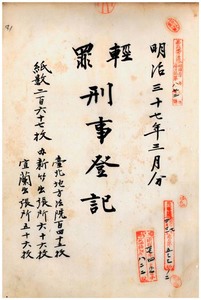 明治三十七年三月分
輕罪
刑事登記
紙数二百六十七枚
臺北地方法院百四十五枚
内新竹出張所六十六枚
宜蘭出張所五十六枚